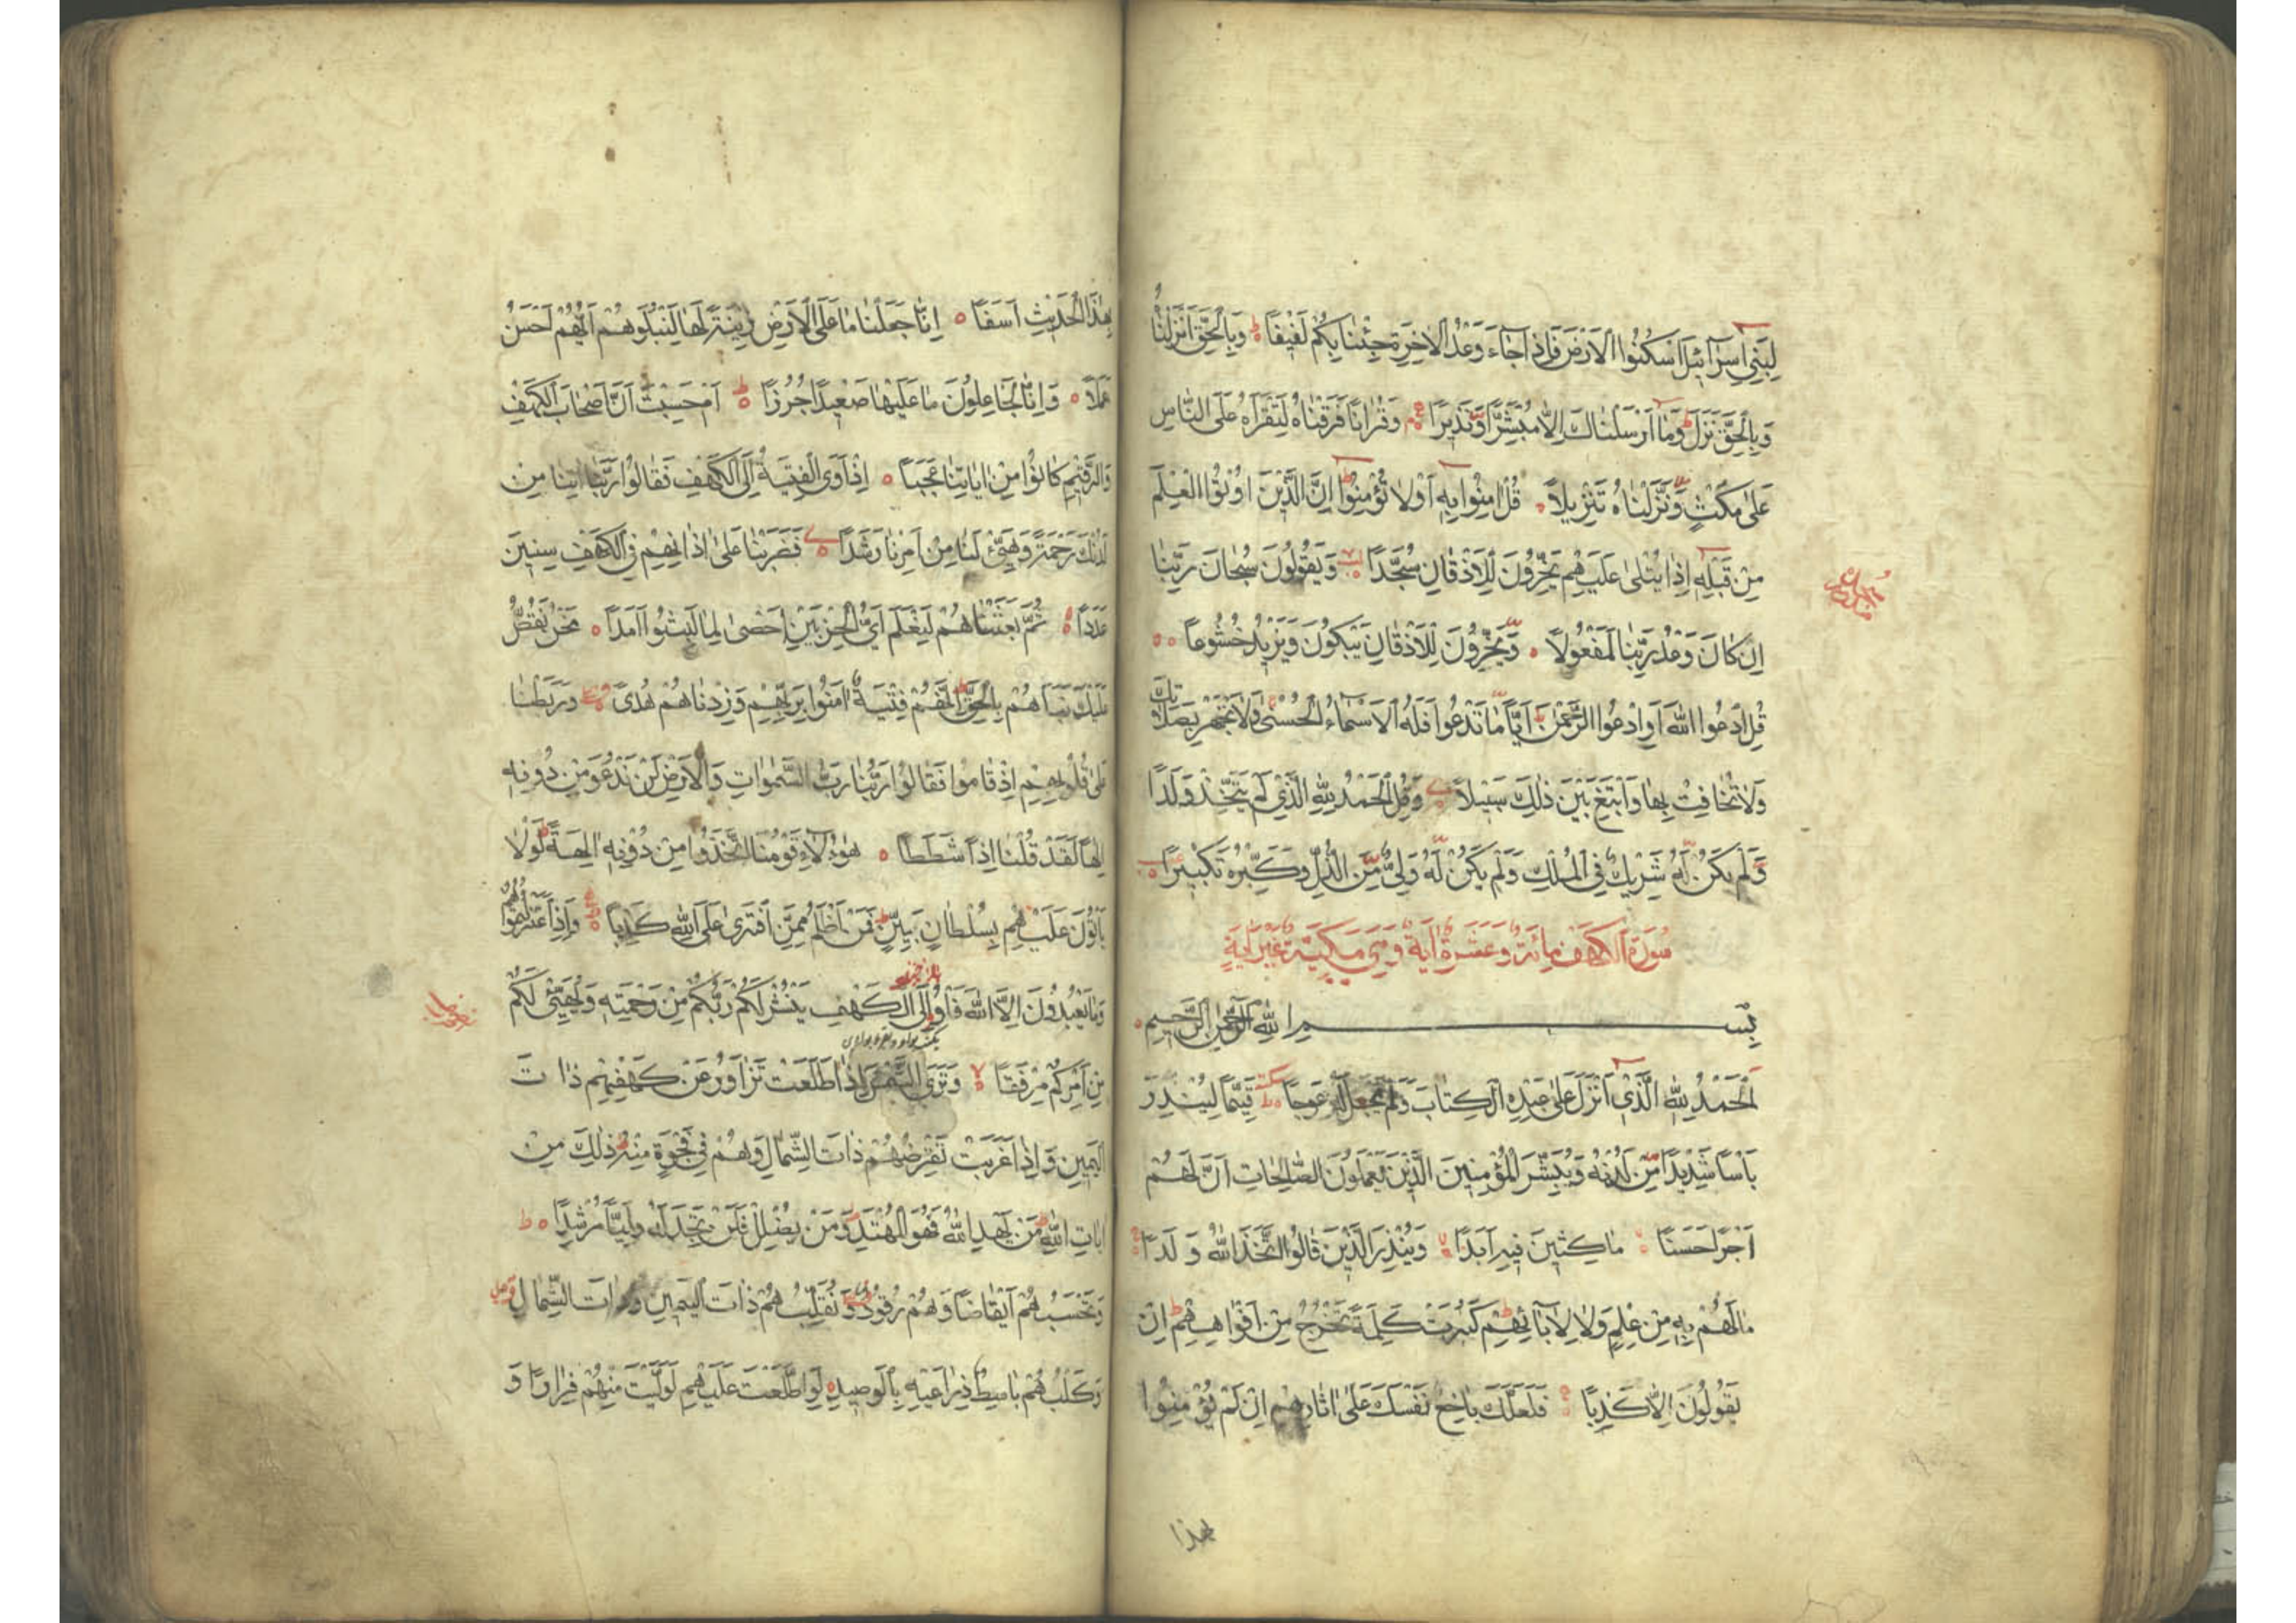 لِبَنِي اِسْرَآئِيلَ اسْكُنُوا الْاَرْضَ فَاِذَا جَآءَ وَعْدُ الْاٰخِرَةِ جِئْنَا بِكُمْ لَفِيفًا وَبِالْحَقِّ اَنْزَلْنَاهُ
وَبِالْحَقِّ نَزَلَ وَمَا اَرْسَلْنَاكَ اِلَّا مُبَشِّرًا وَنَذِيرًا وَقُرْاٰنًا فَرَقْنَاهُ لِتَقْرَاَهُ عَلَى النَّاسِ
عَلٰى مُكْثٍ وَنَزَّلْنَاهُ تَنْزِيلًا قُلْ اٰمِنُوا بِهِ اَوْ لَا تُؤْمِنُوا اِنَّ الَّذِينَ اُوتُوا الْعِلْمَ
مِنْ قَبْلِهِ اِذَا يُتْلٰى عَلَيْهِمْ يَخِرُّونَ لِلْاَذْقَانِ سُجَّدًا وَيَقُولُونَ سُبْحَانَ رَبِّنَا
اِنْ كَانَ وَعْدُ رَبِّنَا لَمَفْعُولًا وَيَخِرُّونَ لِلْاَذْقَانِ يَبْكُونَ وَيَزِيدُهُمْ خُشُوعًا
قُلِ ادْعُوا اللّٰهَ اَوِ ادْعُوا الرَّحْمٰنَ اَيًّا مَّا تَدْعُوا فَلَهُ الْاَسْمَآءُ الْحُسْنٰى وَلَا تَجْهَرْ بِصَلَاتِكَ
وَلَا تُخَافِتْ بِهَا وَابْتَغِ بَيْنَ ذٰلِكَ سَبِيلًا وَقُلِ الْحَمْدُ لِلّٰهِ الَّذِي لَمْ يَتَّخِذْ وَلَدًا
وَّلَمْ يَكُنْ لَّهُ شَرِيكٌ فِي الْمُلْكِ وَلَمْ يَكُنْ لَّهُ وَلِيٌّ مِّنَ الذُّلِّ وَكَبِّرْهُ تَكْبِيرًا
سُورَةُ الْكَهْفِ مِائَةٌ وَعَشَرَةُ اٰيَةٍ وَهِيَ مَكِّيَّةٌ غَيْرَ اٰيَةٍ
بِسْمِ اللّٰهِ الرَّحْمٰنِ الرَّحِيمِ
اَلْحَمْدُ لِلّٰهِ الَّذِي اَنْزَلَ عَلٰى عَبْدِهِ الْكِتَابَ وَلَمْ يَجْعَلْ لَهُ عِوَجًا قَيِّمًا لِيُنْذِرَ
بَاْسًا شَدِيدًا مِّنْ لَدُنْهُ وَيُبَشِّرَ الْمُؤْمِنِينَ الَّذِينَ يَعْمَلُونَ الصَّالِحَاتِ اَنَّ لَهُمْ
اَجْرًا حَسَنًا مَاكِثِينَ فِيهِ اَبَدًا وَيُنْذِرَ الَّذِينَ قَالُوا اتَّخَذَ اللّٰهُ وَلَدًا
مَا لَهُمْ بِهِ مِنْ عِلْمٍ وَلَا لِاٰبَآئِهِمْ كَبُرَتْ كَلِمَةً تَخْرُجُ مِنْ اَفْوَاهِهِمْ اِنْ
يَقُولُونَ اِلَّا كَذِبًا فَلَعَلَّكَ بَاخِعٌ نَفْسَكَ عَلٰى اٰثَارِهِمْ اِنْ لَمْ يُؤْمِنُوا
بهذا
بِهٰذَا الْحَدِيثِ اَسَفًا اِنَّا جَعَلْنَا مَا عَلَى الْاَرْضِ زِينَةً لَهَا لِنَبْلُوَهُمْ اَيُّهُمْ اَحْسَنُ
عَمَلًا وَاِنَّا لَجَاعِلُونَ مَا عَلَيْهَا صَعِيدًا جُرُزًا اَمْ حَسِبْتَ اَنَّ اَصْحَابَ الْكَهْفِ
وَالرَّقِيمِ كَانُوا مِنْ اٰيَاتِنَا عَجَبًا اِذْ اَوَى الْفِتْيَةُ اِلَى الْكَهْفِ فَقَالُوا رَبَّنَا اٰتِنَا مِنْ
لَدُنْكَ رَحْمَةً وَهَيِّئْ لَنَا مِنْ اَمْرِنَا رَشَدًا فَضَرَبْنَا عَلٰى اٰذَانِهِمْ فِي الْكَهْفِ سِنِينَ
عَدَدًا ثُمَّ بَعَثْنَاهُمْ لِنَعْلَمَ اَيُّ الْحِزْبَيْنِ اَحْصٰى لِمَا لَبِثُوا اَمَدًا نَحْنُ نَقُصُّ
عَلَيْكَ نَبَاَهُمْ بِالْحَقِّ اِنَّهُمْ فِتْيَةٌ اٰمَنُوا بِرَبِّهِمْ وَزِدْنَاهُمْ هُدًى وَرَبَطْنَا
عَلٰى قُلُوبِهِمْ اِذْ قَامُوا فَقَالُوا رَبُّنَا رَبُّ السَّمٰوَاتِ وَالْاَرْضِ لَنْ نَدْعُوَ مِنْ دُونِهِ
اِلٰهًا لَقَدْ قُلْنَا اِذًا شَطَطًا هٰؤُلَآءِ قَوْمُنَا اتَّخَذُوا مِنْ دُونِهِ اٰلِهَةً لَوْلَا
يَاْتُونَ عَلَيْهِمْ بِسُلْطَانٍ بَيِّنٍ فَمَنْ اَظْلَمُ مِمَّنِ افْتَرٰى عَلَى اللّٰهِ كَذِبًا وَاِذِ اعْتَزَلْتُمُوهُمْ
وَمَا يَعْبُدُونَ اِلَّا اللّٰهَ فَاْوُوا اِلَى الْكَهْفِ يَنْشُرْ لَكُمْ رَبُّكُمْ مِنْ رَحْمَتِهِ وَيُهَيِّئْ لَكُمْ
مِنْ اَمْرِكُمْ مِرْفَقًا وَتَرَى الشَّمْسَ اِذَا طَلَعَتْ تَزَاوَرُ عَنْ كَهْفِهِمْ ذَاتَ
الْيَمِينِ وَاِذَا غَرَبَتْ تَقْرِضُهُمْ ذَاتَ الشِّمَالِ وَهُمْ فِي فَجْوَةٍ مِنْهُ ذٰلِكَ مِنْ
اٰيَاتِ اللّٰهِ مَنْ يَهْدِ اللّٰهُ فَهُوَ الْمُهْتَدِ وَمَنْ يُضْلِلْ فَلَنْ تَجِدَ لَهُ وَلِيًّا مُرْشِدًا
وَتَحْسَبُهُمْ اَيْقَاظًا وَهُمْ رُقُودٌ وَنُقَلِّبُهُمْ ذَاتَ الْيَمِينِ وَذَاتَ الشِّمَالِ
وَكَلْبُهُمْ بَاسِطٌ ذِرَاعَيْهِ بِالْوَصِيدِ لَوِ اطَّلَعْتَ عَلَيْهِمْ لَوَلَّيْتَ مِنْهُمْ فِرَارًا وَ